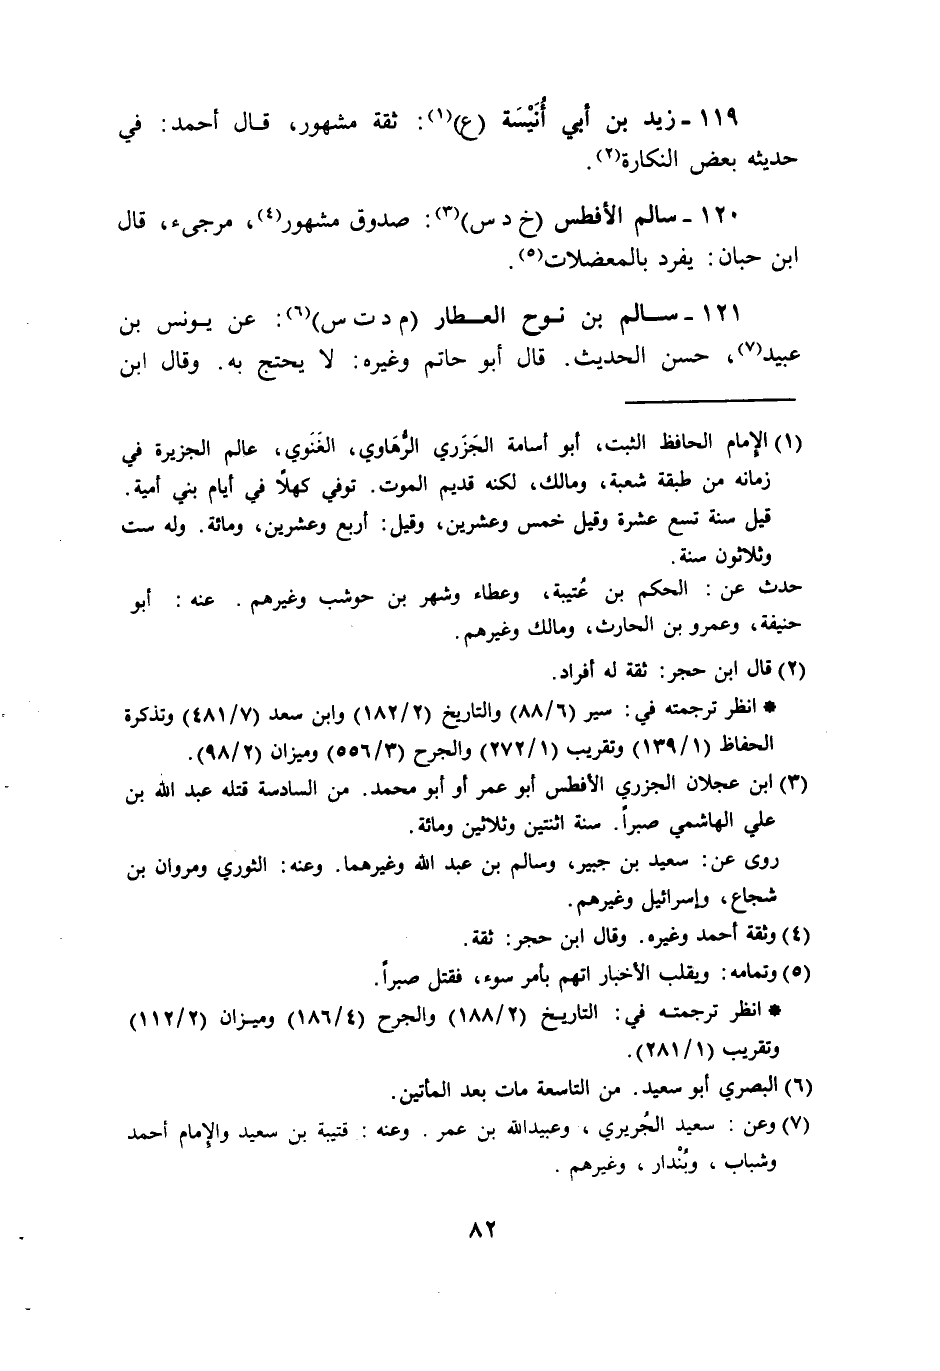 ١١٩ - زيد بن أبي أُنَيْسَة (ع)(١): ثقة مشهور، قال أحمد: في
حديثه بعض النكارة(٢).
١٢٠ - سالم الأفطس (خ د س)(٣): صدوق مشهور(٤)، مرجىء، قال
ابن حبان: يفرد بالمعضلات(٥).
١٢١ - سالم بن نوح العطار (م د ت س)(٦): عن يونس بن
عبيد(٧)، حسن الحديث. قال أبو حاتم وغيره: لا يحتج به. وقال ابن
(١) الإمام الحافظ الثبت، أبو أسامة الجَزَري الرُّهَاوي، الغَنَوي، عالم الجزيرة في
زمانه من طبقة شعبة، ومالك، لكنه قديم الموت. توفي كهلاً في أيام بني أمية.
قيل سنة تسع عشرة وقيل خمس وعشرين، وقيل: أربع وعشرين، ومائة. وله ست
وثلاثون سنة.
حدث عن: الحكم بن عُتيبة، وعطاء وشهر بن حوشب وغيرهم. عنه: أبو
حنيفة، وعمرو بن الحارث، ومالك وغيرهم.
(٢) قال ابن حجر: ثقة له أفراد.
* انظر ترجمته في: سير (٨٨/٦) والتاريخ (١٨٢/٢) وابن سعد (٤٨١/٧) وتذكرة
الحفاظ (١٣٩/١) وتقريب (٢٧٢/١) والجرح (٥٥٦/٣) وميزان (٩٨/٢).
(٣) ابن عجلان الجزري الأفطس أبو عمر أو أبو محمد. من السادسة قتله عبد الله بن
علي الهاشمي صبراً. سنة اثنتين وثلاثين ومائة.
روى عن: سعيد بن جبير، وسالم بن عبد الله وغيرهما. وعنه: الثوري ومروان بن
شجاع، وإسرائيل وغيرهم.
(٤) وثقة أحمد وغيره. وقال ابن حجر: ثقة.
(٥) وتمامه: ويقلب الأخبار اتهم بأمر سوء، فقتل صبراً.
* انظر ترجمته في: التاريخ (١٨٨/٢) والجرح (١٨٦/٤) وميزان (١١٢/٢)
وتقريب (٢٨١/١).
(٦) البصري أبو سعيد. من التاسعة مات بعد المأتين.
(٧) وعن: سعيد الجُريري، وعبيدالله بن عمر. وعنه: قتيبة بن سعيد والإمام أحمد
وشباب، وبُنْدار، وغيرهم.
٨٢